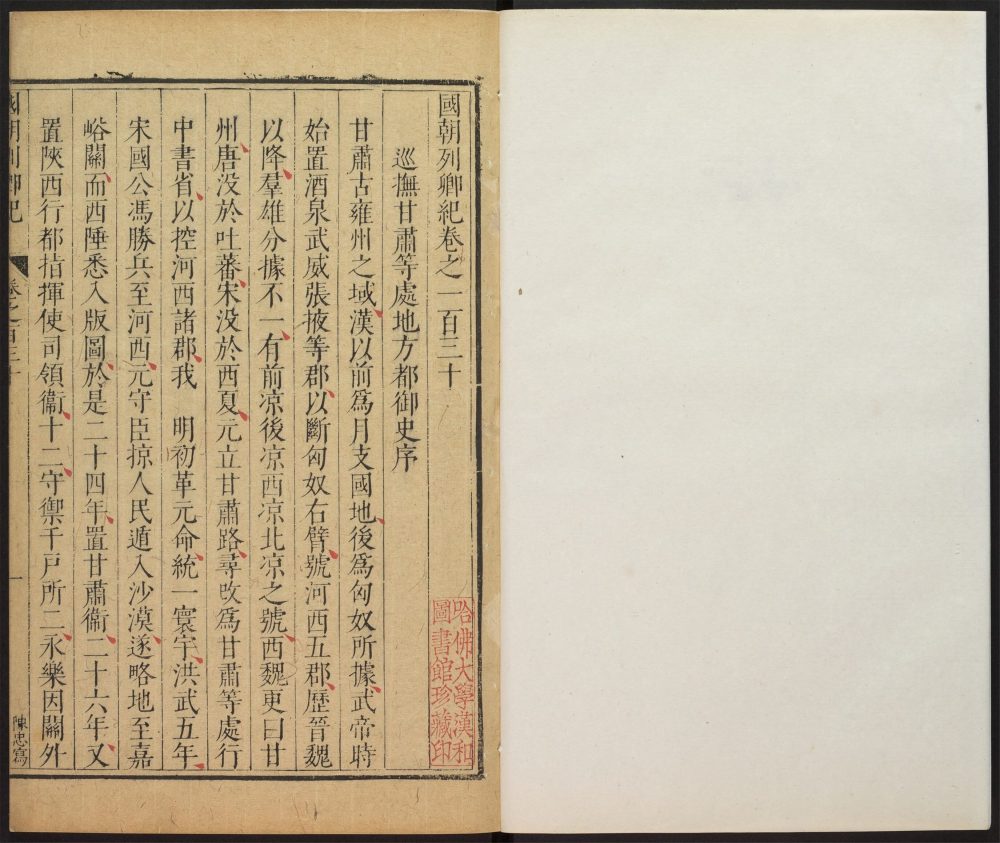 國朝列卿紀卷之一百三十
巡撫甘肅等處地方都御史序
甘肅古雍州之域漢以前爲月支國地後爲匈奴所據武帝時
始置酒泉武威張掖等郡以斷匈奴右臂號河西五郡歷晉魏
以降羣雄分據不一有前凉後凉西凉北凉之號西魏更曰甘
州唐没於吐蕃宋没於西夏元立甘肅路尋改爲甘肅等處行
中書省以控河西諸郡我　明初革元命統一寰宇洪武五年
宋國公馮勝兵至河西元守臣掠人民遁入沙漠遂略地至嘉
峪關而西陲悉入版圖於是二十四年置甘肅衞二十六年又
置陜西行都指揮使司領衞十二守禦千戸所二永樂因關外
國朝列卿紀
卷之一百三十
一
陳忠寫
哈佛大學漢和
圖書館珍藏印